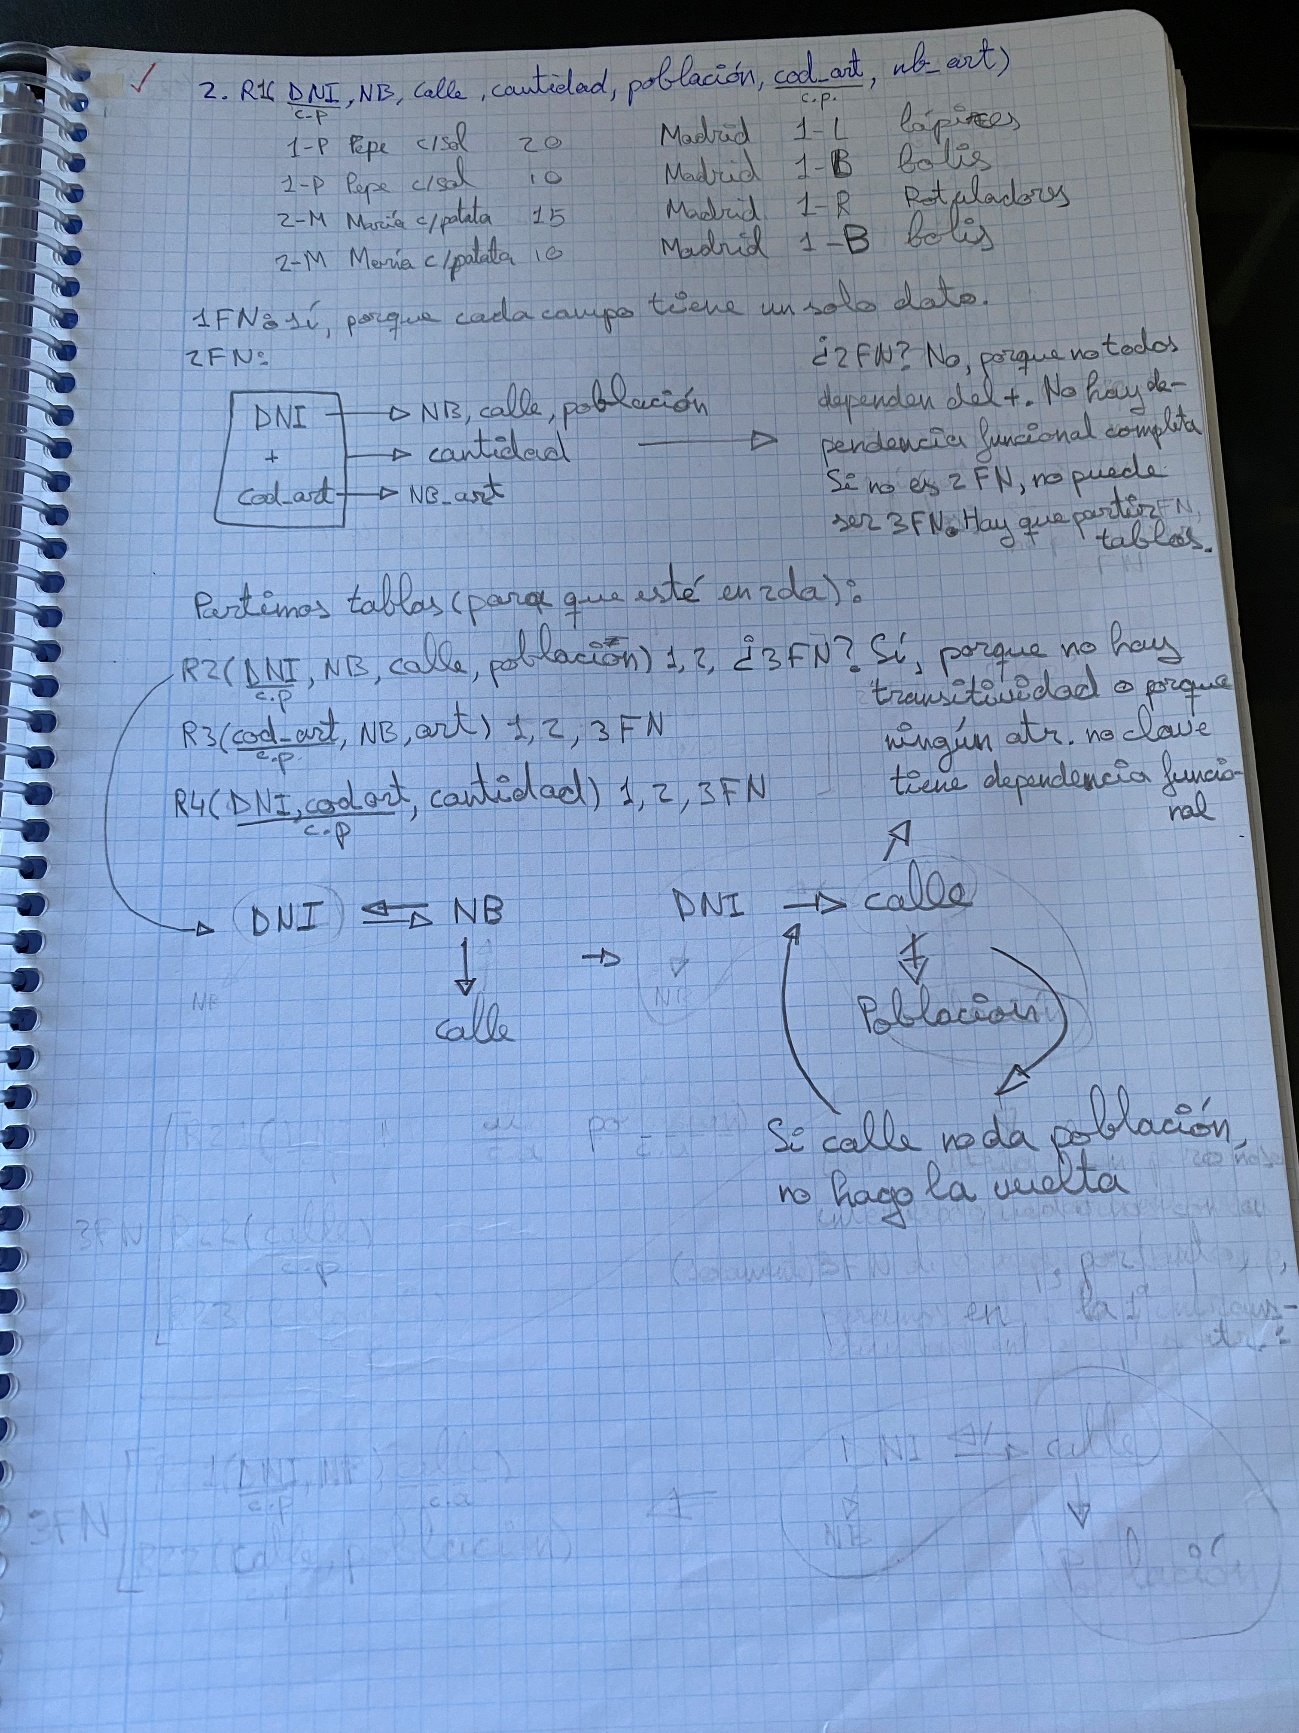 2. R1( DNI, NB, calle, cantidad, población, cod_art, nb_art)
c.p c.p.
1-P Pepe c/sol 20 Madrid 1-L lápices
1-P Pepe c/sol 10 Madrid 1-B bolis
2-M María c/patata 15 Madrid 1-R Rotuladores
2-M María c/patata 10 Madrid 1-B bolis
1FN: sí, porque cada campo tiene un solo dato.
2FN:
DNI → NB, calle, población
+ → cantidad
cod_art → NB_art
¿2FN? No, porque no todos
dependen del +. No hay de-
pendencia funcional completa
Si no es 2FN, no puede
ser 3FN. Hay que partir
tablas.
Partimos tablas (para que esté en 2da):
R2(DNI, NB, calle, población) 1, 2, ¿3FN? Sí, porque no hay
c.p
transitividad o porque
ningún atr. no clave
tiene dependencia funcio-
nal
R3(cod_art, NB, art) 1, 2, 3FN
c.p.
R4(DNI, cod art, cantidad) 1, 2, 3FN
c.p
DNI ⇄ NB → DNI → calle
calle
Población
Si calle no da población,
no hago la vuelta
3FN
3FN